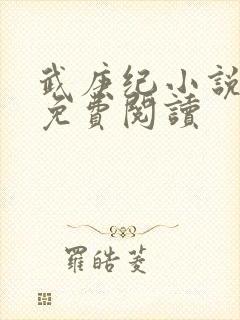 武庚纪小說
免費閱讀
羅皓菱